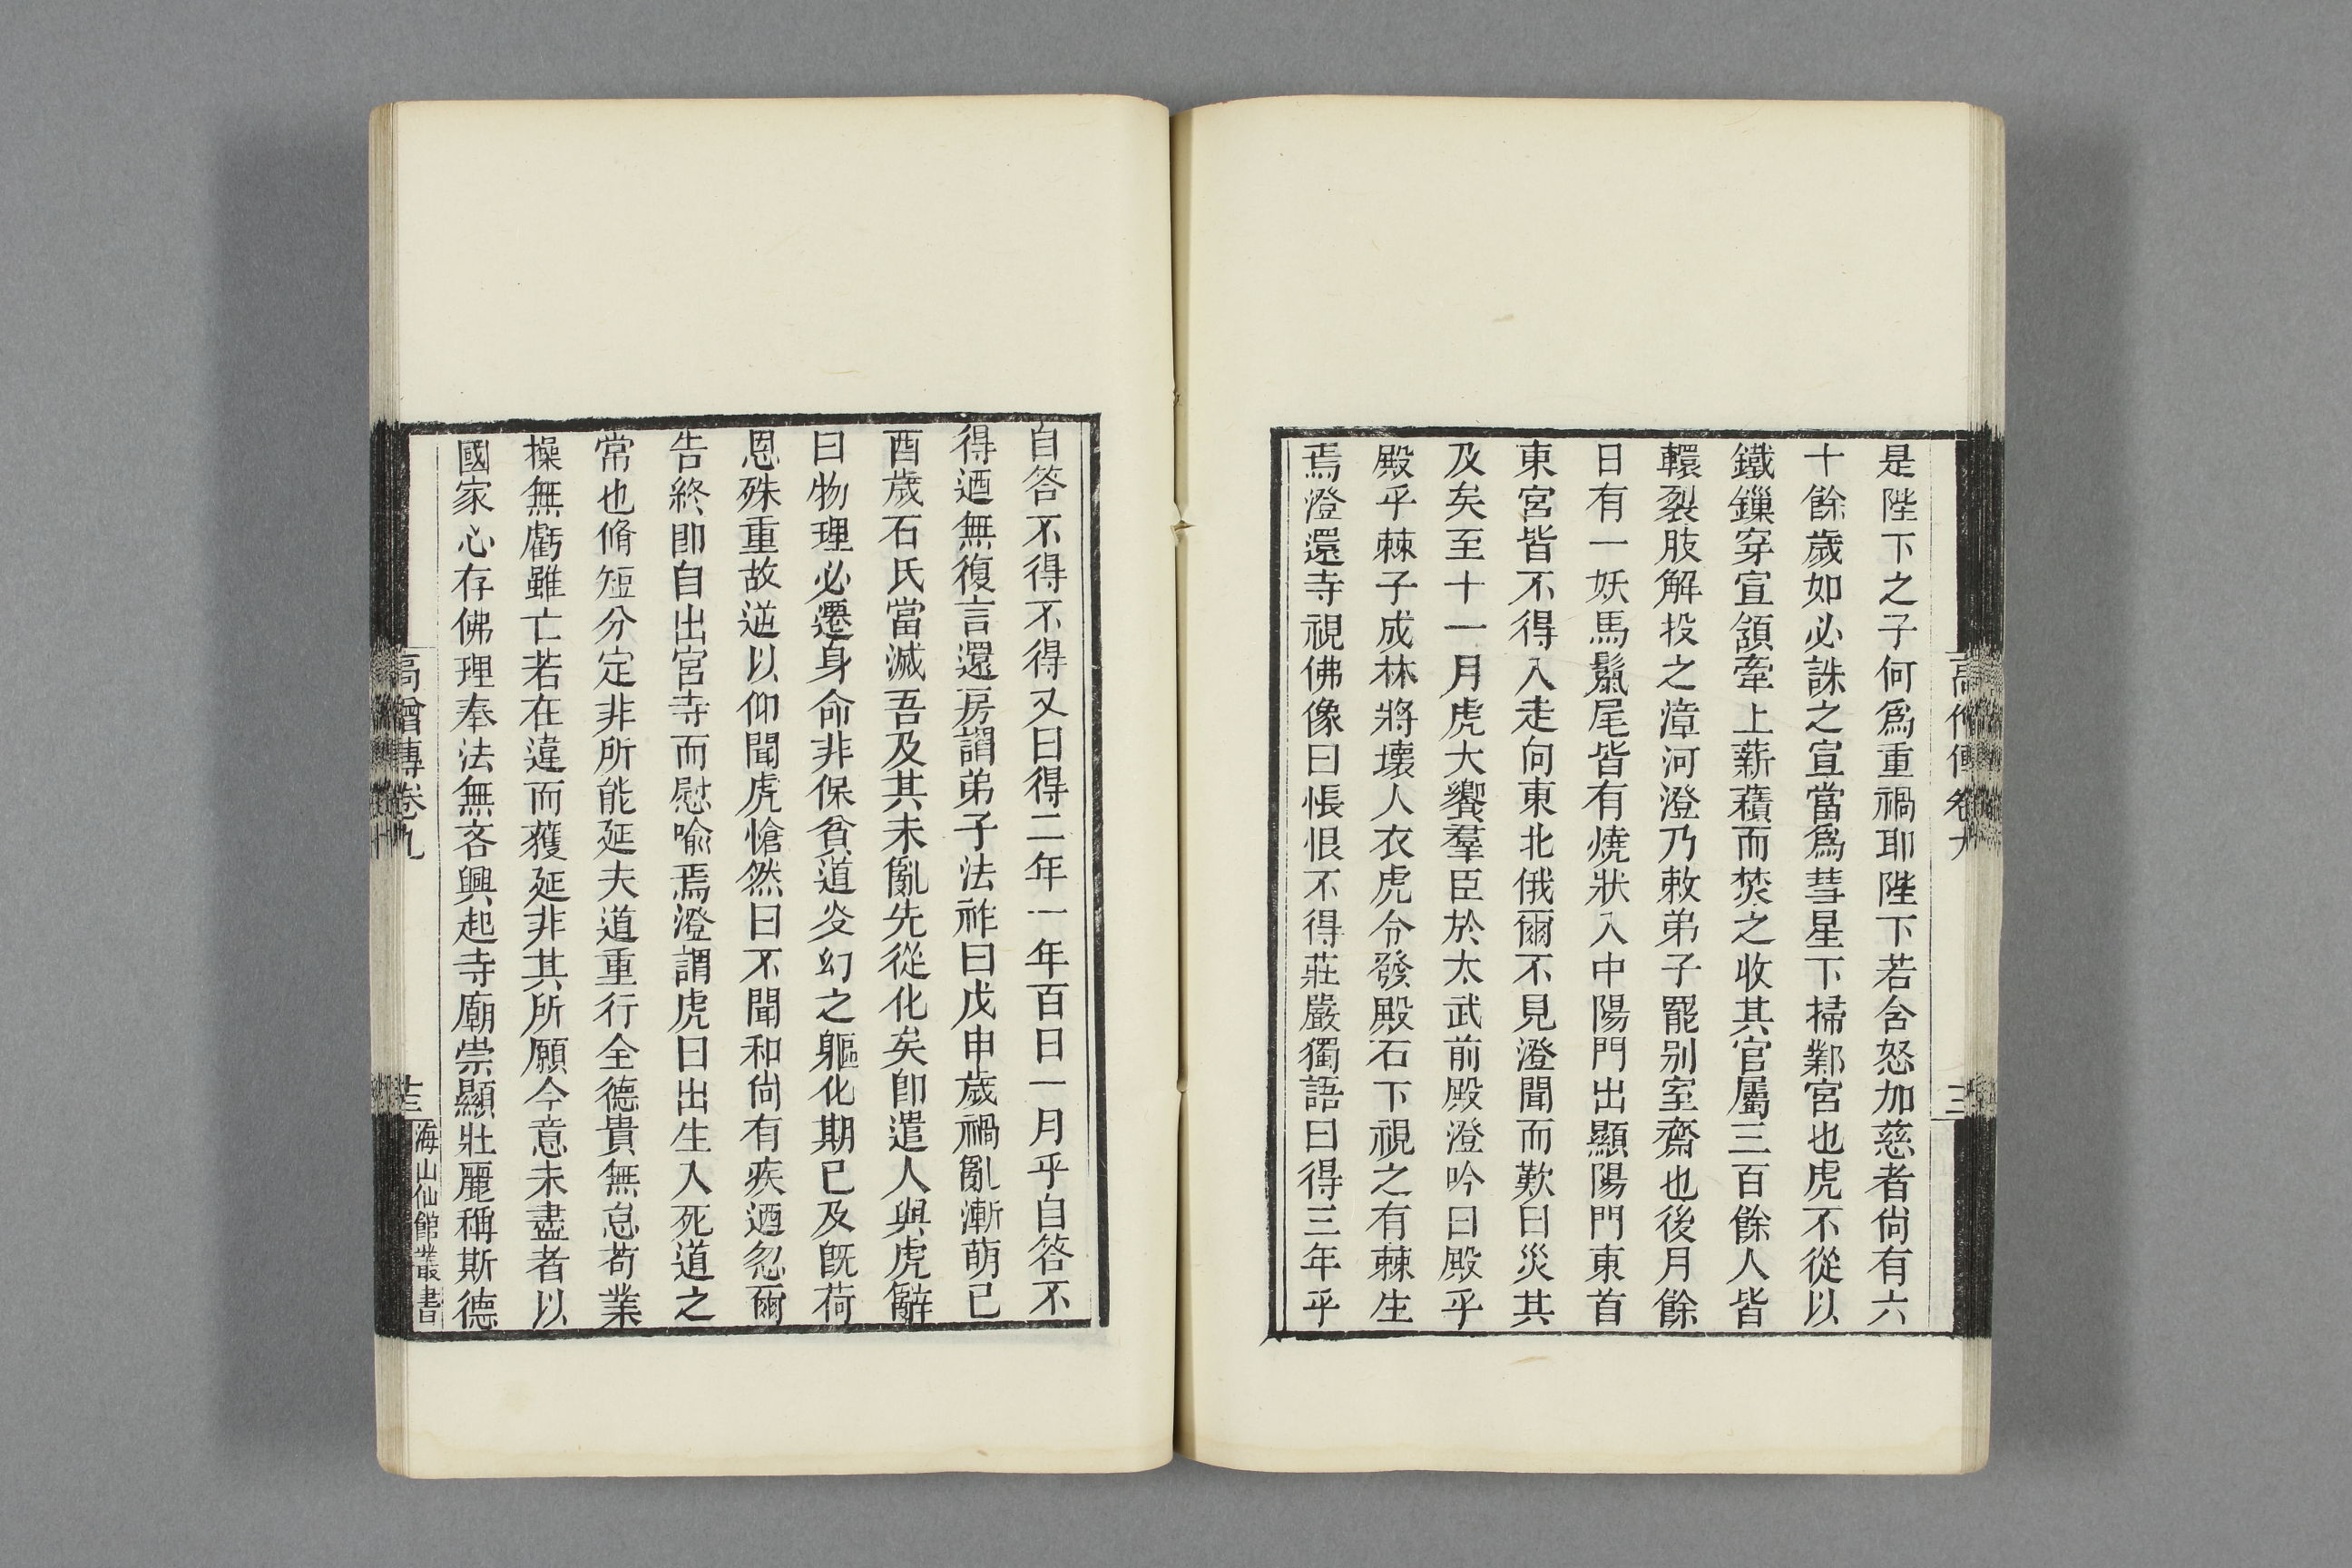 是陛下之子何爲重禍耶陛下若含怒加慈者尙有六
十餘歲如必誅之宣當爲彗星下掃鄴宮也虎不從以
鐵鏁穿宣頷牽上薪𧂐而焚之收其官屬三百餘人皆
轘裂肢解投之漳河澄乃敕弟子罷別室齋也後月餘
日有一妖馬鬣尾皆有燒狀入中陽門出顯陽門東首
東宮皆不得入走向東北俄爾不見澄聞而歎曰災其
及矣至十一月虎大饗羣臣於太武前殿澄吟曰殿乎
殿乎棘子成林將壞人衣虎令發殿石下視之有棘生
焉澄還寺視佛像曰悵恨不得莊嚴獨語曰得三年乎
自答不得不得又曰得二年一年百日一月乎自答不
得迺無復言還房謂弟子法祚曰戊申歲禍亂漸萌己
酉歲石氏當滅吾及其未亂先從化矣卽遣人與虎辭
曰物理必遷身命非保貧道炎幻之軀化期已及旣荷
恩殊重故逆以仰聞虎愴然曰不聞和尙有疾迺忽爾
告終卽自出宮寺而慰喻焉澄謂虎曰出生入死道之
常也脩短分定非所能延夫道重行全德貴無怠苟業
操無虧雖亡若在違而獲延非其所願今意未盡者以
國家心存佛理奉法無吝興起寺廟崇顯壯麗稱斯德
高僧傳卷九
海山仙館叢書